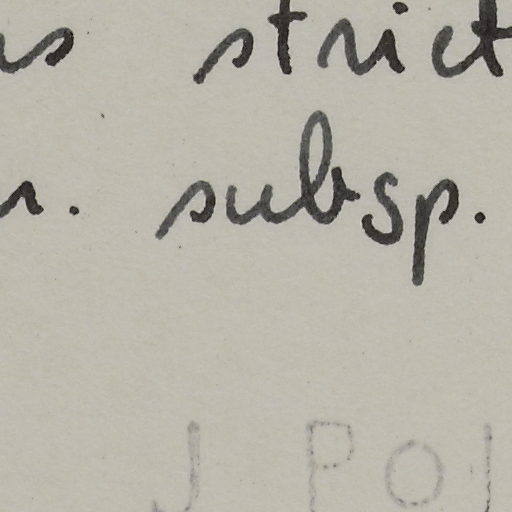 strict
subsp.
J PO